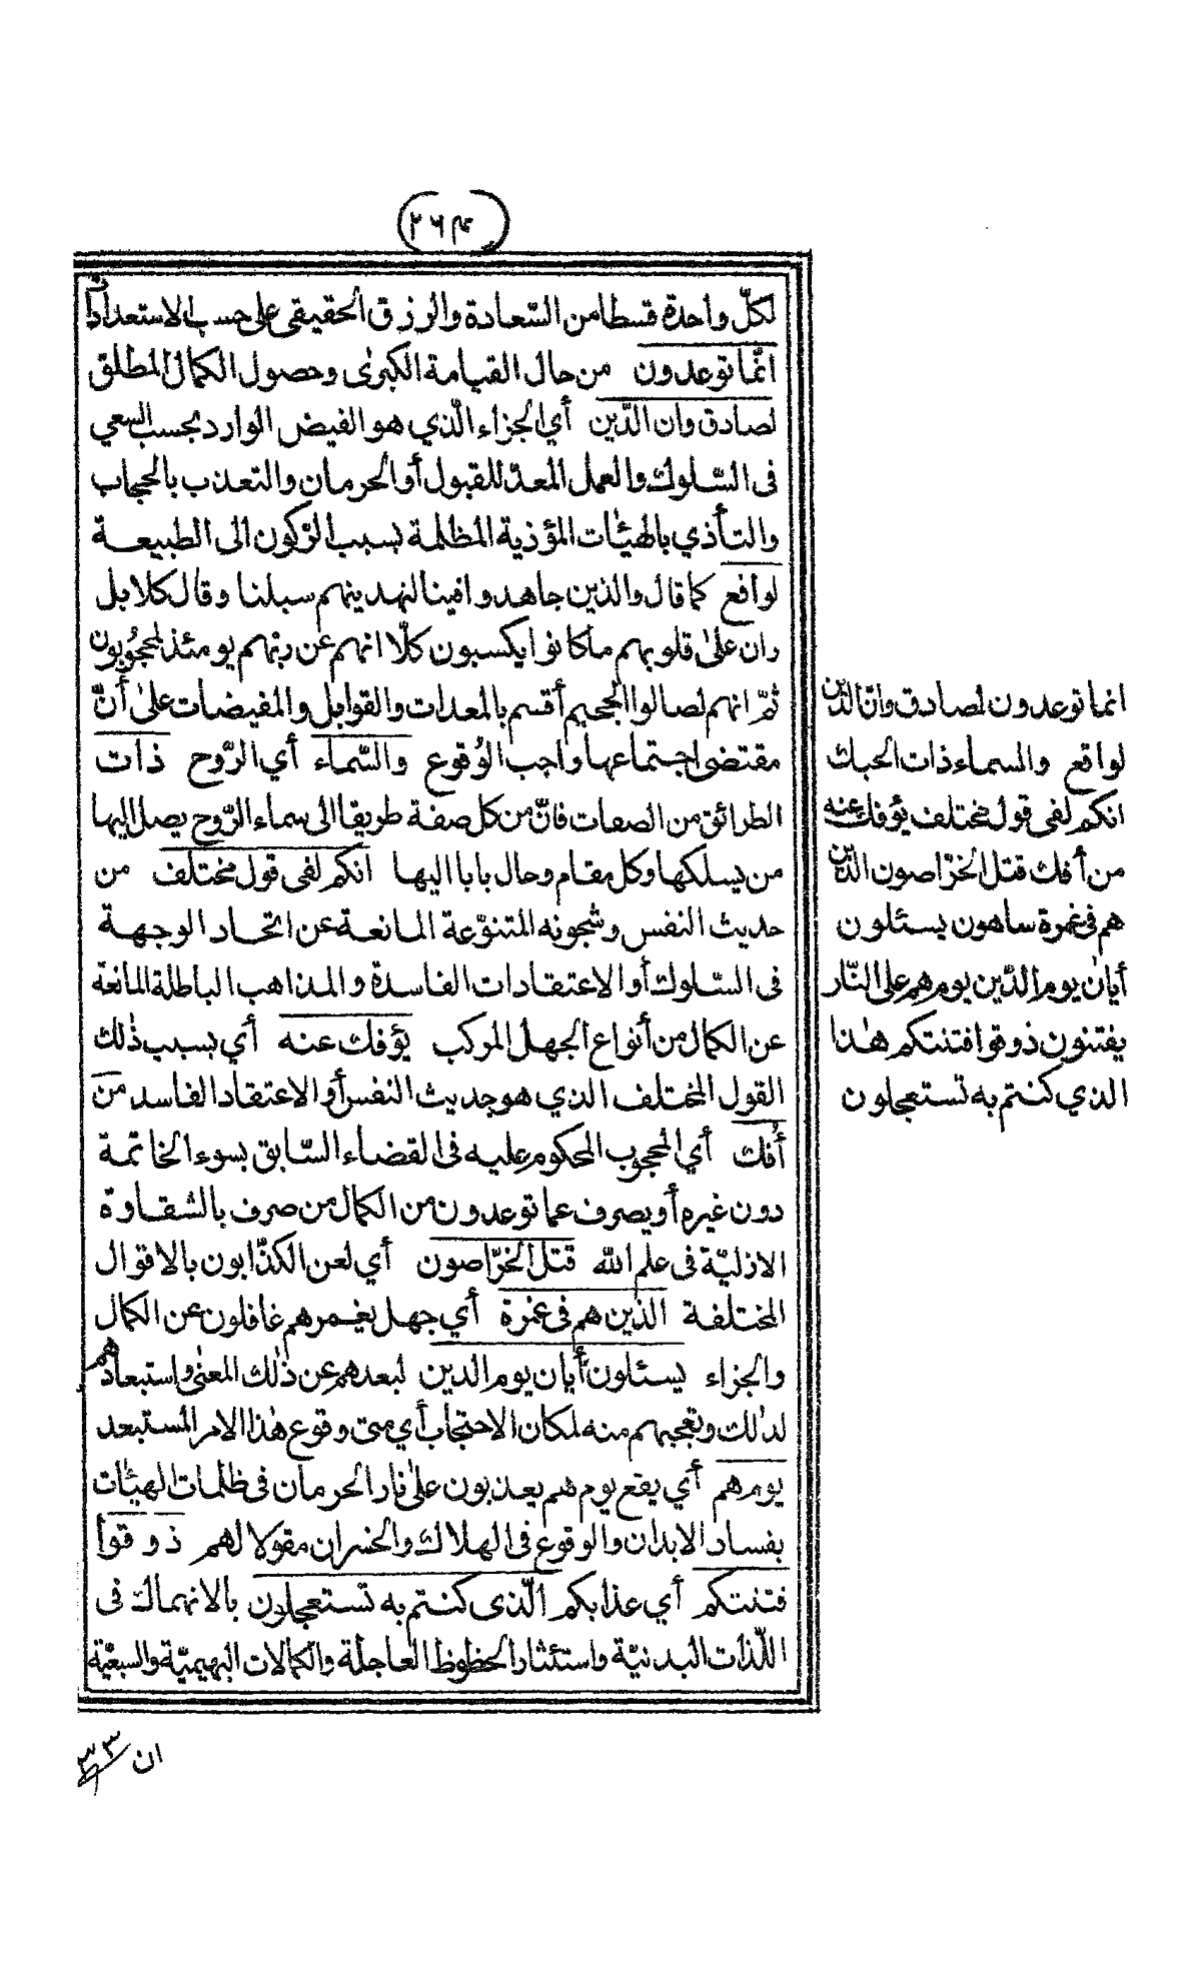 (٢٦٤)
لكلّ واحدة قسطا من السّعادة والرزق الحقيقي على حسب الاستعدادات
انّما توعدون من حال القيامة الكبرىٰ وحصول الكمال المطلق
لصادق وان الدّين أي الجزاء الّذي هو الفيض الوارد بحسب السعي
فى السّلوك والعمل المعدّ للقبول أو الحرمان والتعذب بالحجاب
والتأذي بالهيئات المؤذية المظلمة بسبب الرّكون الى الطبيعة
لواقع كما قال والذين جاهدوا فينا لنهدينهم سبلنا وقال كلا بل
ران علىٰ قلوبهم ما كانوا يكسبون كلّا انهم عن ربّهم يومئذ لمحجوبون
ثمّ انهم لصالوا الجحيم أقسم بالمعدات والقوابل والمفيضات علىٰ أنّ
مقتضى اجتماعها واجب الوُقوع والسّماء أي الرّوح ذات
الطرائق من الصفات فانّ من كل صفة طريقا الى سماء الرّوح يصل اليها
من يسلكها وكل مقام وحال بابا اليها انكم لفى قول مختلف من
حديث النفس وشجونه المتنوّعة المانعة عن اتحاد الوجهة
فى السّلوك أو الاعتقادات الفاسدة والمذاهب الباطلة المانعة
عن الكمال من أنواع الجهل المركب يؤفك عنه أي بسبب ذٰلك
القول المختلف الذي هو حديث النفس أو الاعتقاد الفاسد من
أُفك أي المحجوب المحكوم عليه فى القضاء السّابق بسوء الخاتمة
دون غيره أو يصرف عما توعدون من الكمال من صرف بالشقاوة
الازليّة فى علم الله قتل الخرّاصون أي لعن الكذّابون بالاقوال
المختلفة الذين هم فى غمرة أي جهل يغمرهم غافلون عن الكمال
والجزاء يسئلون أيان يوم الدين لبعدهم عن ذٰلك المعنىٰ واستبعادهم
لذٰلك وتعجبهم منه لمكان الاحتجاب أي متى وقوع هٰذا الامر المستبعد
يوم هم أي يقع يوم هم يعذبون علىٰ نار الحرمان فى ظلمات الهيئات
بفساد الابدان والوقوع فى الهلاك والخسران مقولا لهم ذوقوا
فتنتكم أي عذابكم الّذى كنتم به تستعجلون بالانهماك فى
اللّذات البدنيّة واستئثار الحظوظ العاجلة والكمالات البهيميّة والسبعيّة
انما توعدون لصادق وانّ الدّين
لواقع والسماء ذات الحبك
انكم لفى قول مختلف يؤفك عنه
من أفك قتل الخرّاصون الذين
هم فى غمرة ساهون يسئلون
أيان يوم الدّين يوم هم على النّار
يفتنون ذوقوا فتنتكم هٰذا
الذي كنتم به تستعجلون
ان ٣٣